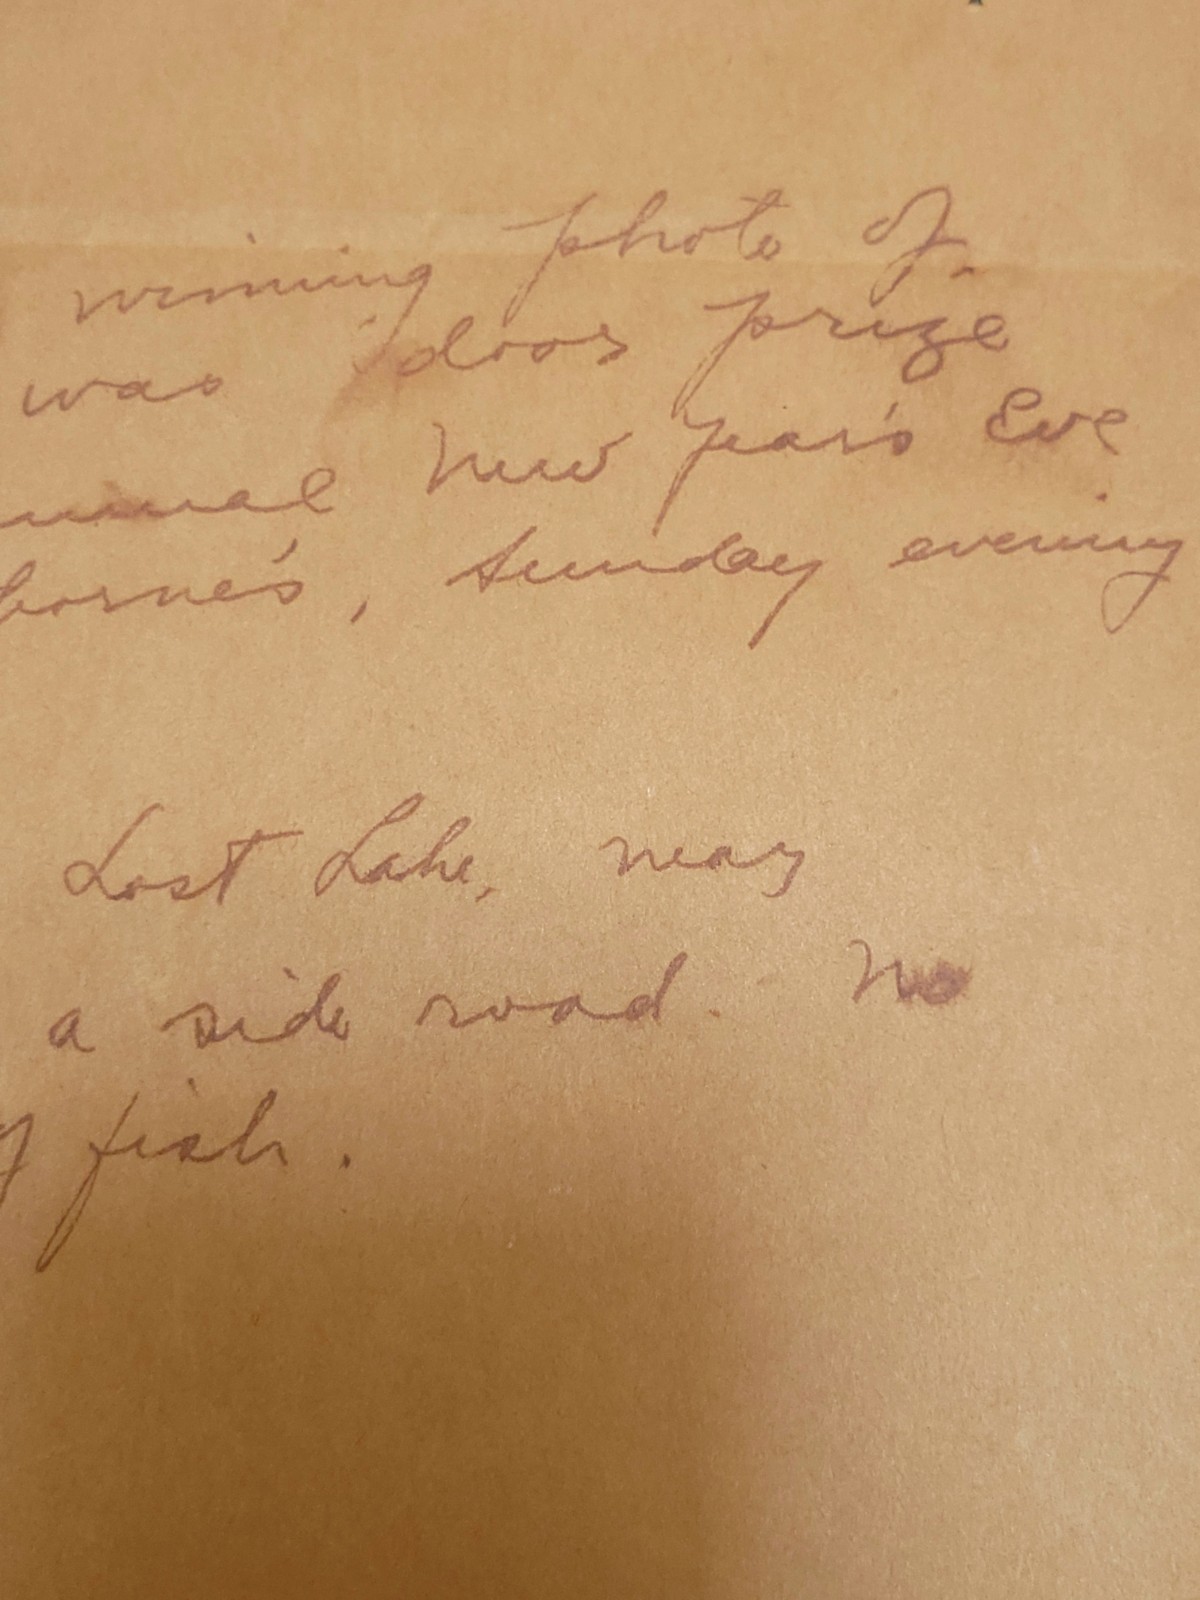 winning photo of
was door prize
annual New Year's Eve
borne's, Sunday evening
Lost Lake, near
a side road. No
fish.